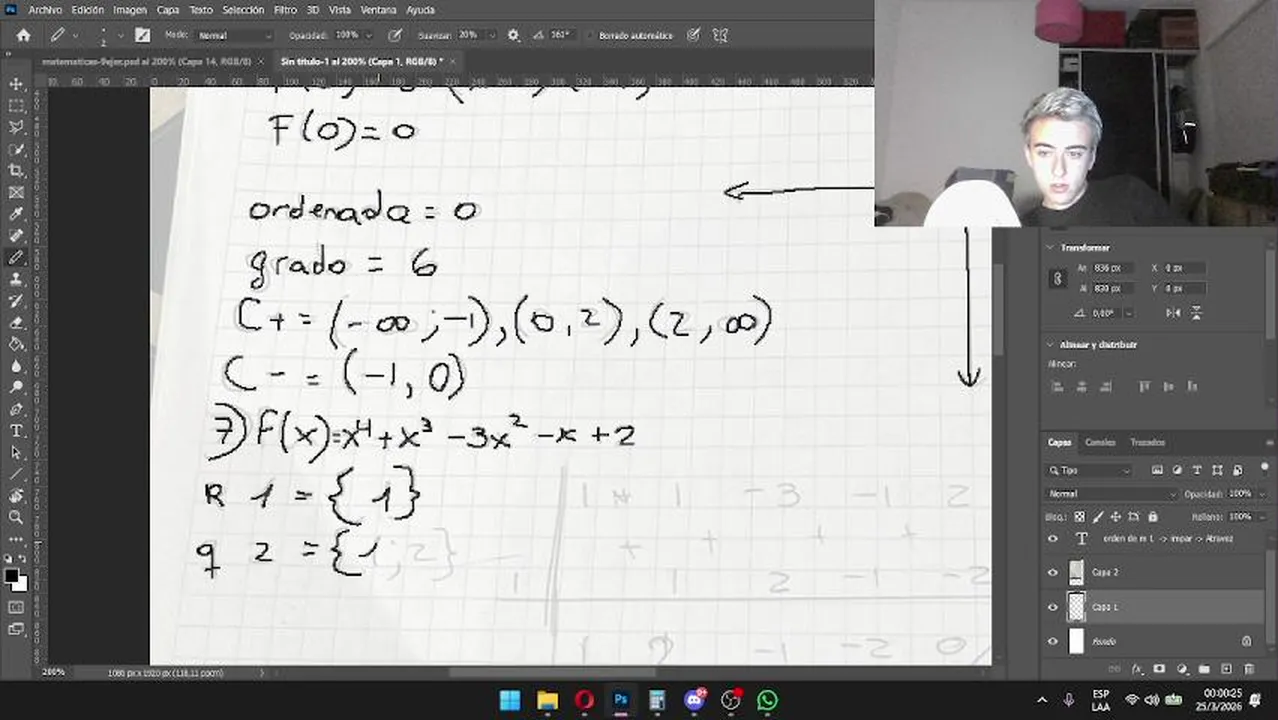 Archivo Edición Imagen Capa Texto Selección Filtro 3D Vista Ventana Ayuda
Modo: Normal Opacidad: 100% Suavizar: 20% 161° Borrado automático
matematicas-9ejer.psd al 200% (Capa 14, RGB/8) × Sin título-1 al 200% (Capa 1, RGB/8) * ×
F(0)= 0
ordenada = 0
grado = 6
C+ = (-∞ ; -1), (0, 2), (2, ∞)
C- = (-1, 0)
7) F(x)=x⁴ + x³ - 3x² - x + 2
R 1 = { 1 }
q 2 = { 1 ; 2 }
1 1 -3 -1 2
+ + + +
1 1 2 -1 -2
1 2 -1 -2 0
Transformar
An 836 px X 0 px
Al 830 px Y 0 px
0,00°
Alinear y distribuir
Alinear:
Capas Canales Trazados
Tipo
Normal Opacidad: 100%
Bloq.: Relleno: 100%
T orden de m 1. -> impar -> Atravez
Capa 2
Capa 1
Fondo
200%
ESP
LAA
00:00:25
25/3/2026